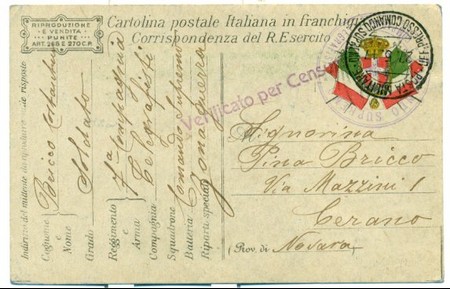 RIPRODUZIONE
E VENDITA
PUNITE
ART. 268 E 270 C.P.
Cartolina postale Italiana in franchigia
Corrispondenza del R. Esercito
Verificato per Censura
Indirizzo del mittente da riprodurre nelle risposte
Cognome e Nome Bricco
Grado Soldato
Reggimento e Arma 7ª Compagnia
Compagnia Telegrafisti
Squadrone
Batteria Comando Supremo
Riparti speciali Zona guerra
POSTA MILITARE
COMANDO SUPREMO
Signorina
Pina Bricco
Via Mazzini 1
Cerano
(Prov. di Novara)